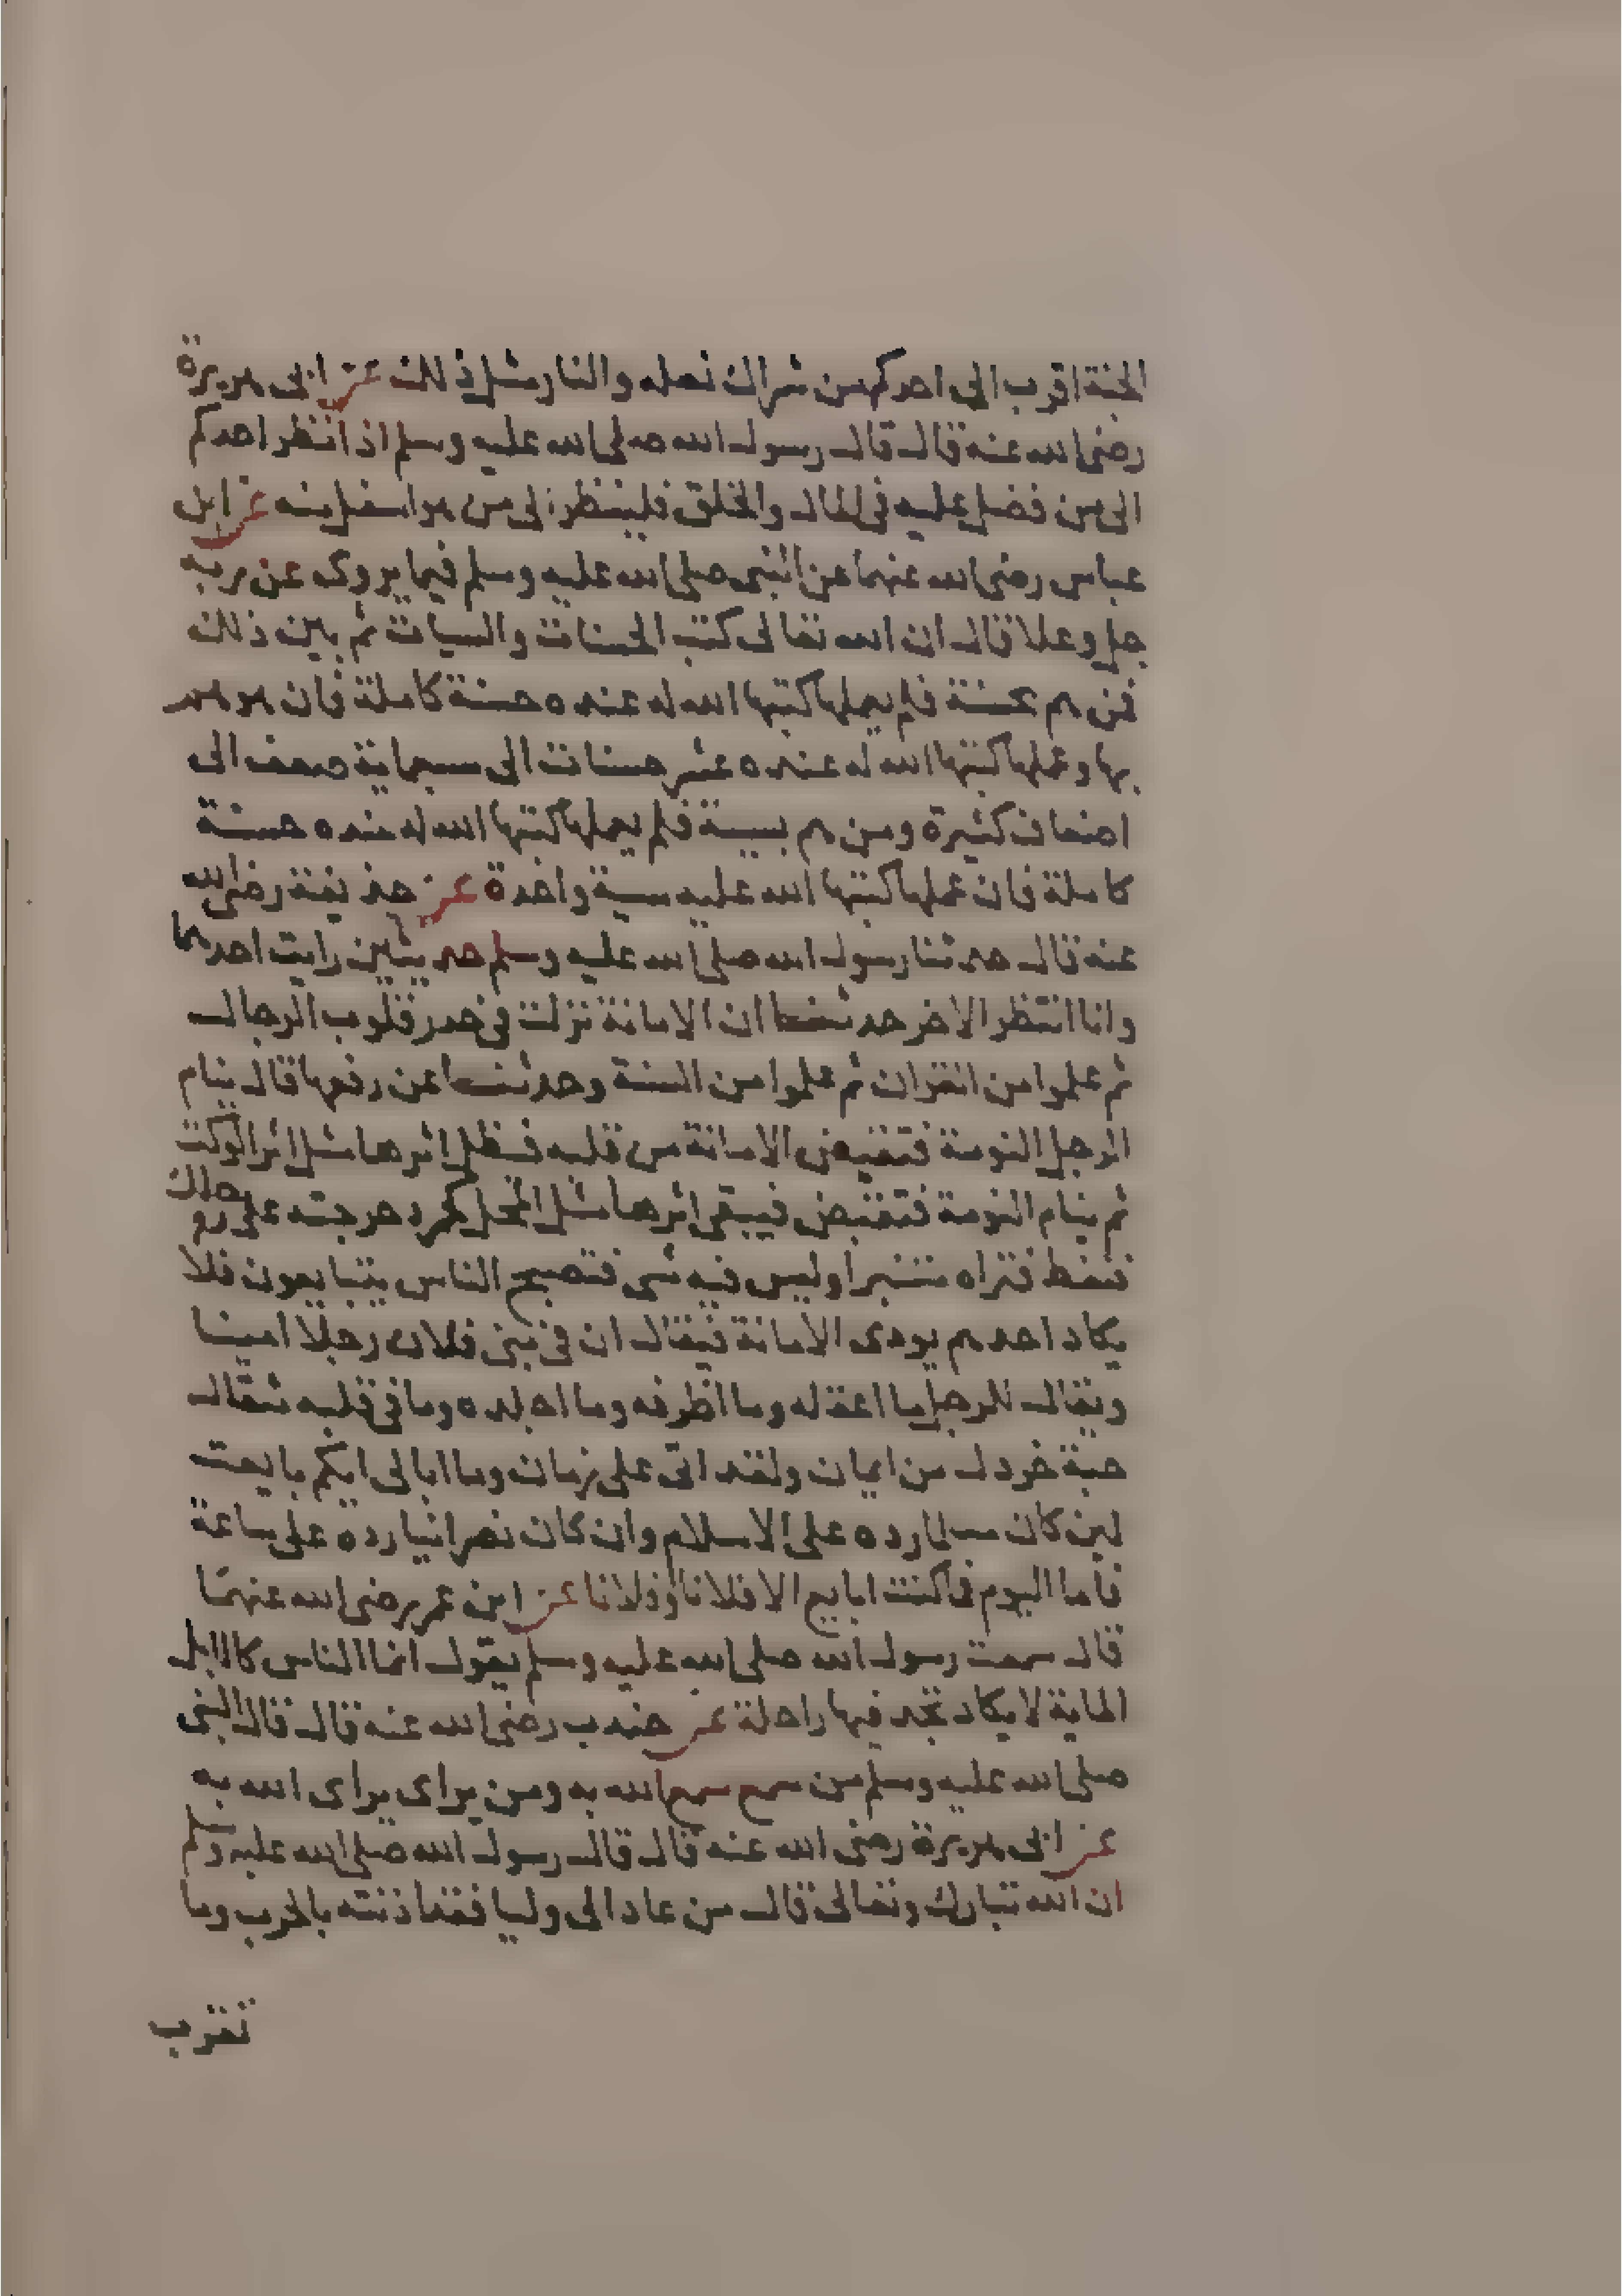 الجنة اقرب الى احدكم من شراك نعله والنار مثل ذلك عن ابى هريرة
رضى الله عنه قال قال رسول الله صلى الله عليه وسلم اذا نظر احدكم
الى من فضل عليه فى المال والخلق فلينظر الى من هو اسفل منه عن ابن
عباس رضى الله عنهما عن النبى صلى الله عليه وسلم فيما يروى عن ربه
جل وعلا قال ان الله تعالى كتب الحسنات والسيات ثم بين ذلك
فمن هم بحسنة فلم يعملها كتبها الله له عنده حسنة كاملة فان هو هم
بها وعملها كتبها الله له عنده عشر حسنات الى سبعماية ضعف الى
اضعاف كثيرة ومن هم بسيية فلم يعملها كتبها الله له عنده حسنة
كاملة فان عملها كتبها الله عليه سيية واحدة عن حذيفة رضى الله
عنه قال حدثنا رسول الله صلى الله عليه وسلم حديثين رايت احدهما
وانا انتظر الاخر حدثنا ان الامانة نزلت فى جدر قلوب الرجال
ثم علموا من القران ثم علموا من السنة وحدثنا عن رفعها قال ينام
الرجل النومة فتقبض الامانة من قلبه فيظل اثرها مثل اثر الوكت
ثم ينام النومة فتقبض فيبقى اثرها مثل المجل كجمر دحرجته على رجلك
فنفط فتراه منتبرا وليس فيه شى فتصبح الناس يتبايعون فلا
يكاد احدهم يودى الامانة فيقال ان فى بنى فلان رجلا امينا
ويقال للرجل ما اعقله وما اظرفه وما اجلده وما فى قلبه مثقال
حبة خردل من ايمان ولقد اتى على زمان وما ابالى ايكم بايعت
لين كان مسلما رده على الاسلام وان كان نصرانيا رده على ساعة
فاما اليوم فما كنت ابايع الا فلانا وفلانا عن ابن عمر رضى الله عنهما
قال سمعت رسول الله صلى الله عليه وسلم يقول انما الناس كالابل
الماية لا يكاد تجد فيها راحلة عن جندب رضى الله عنه قال قال النبى
صلى الله عليه وسلم من سمع سمع الله به ومن يراى يراى الله به
عن ابى هريرة رضى الله عنه قال قال رسول الله صلى الله عليه وسلم
ان الله تبارك وتعالى قال من عادا لى وليا فقد اذنته بالحرب وما
تقرب